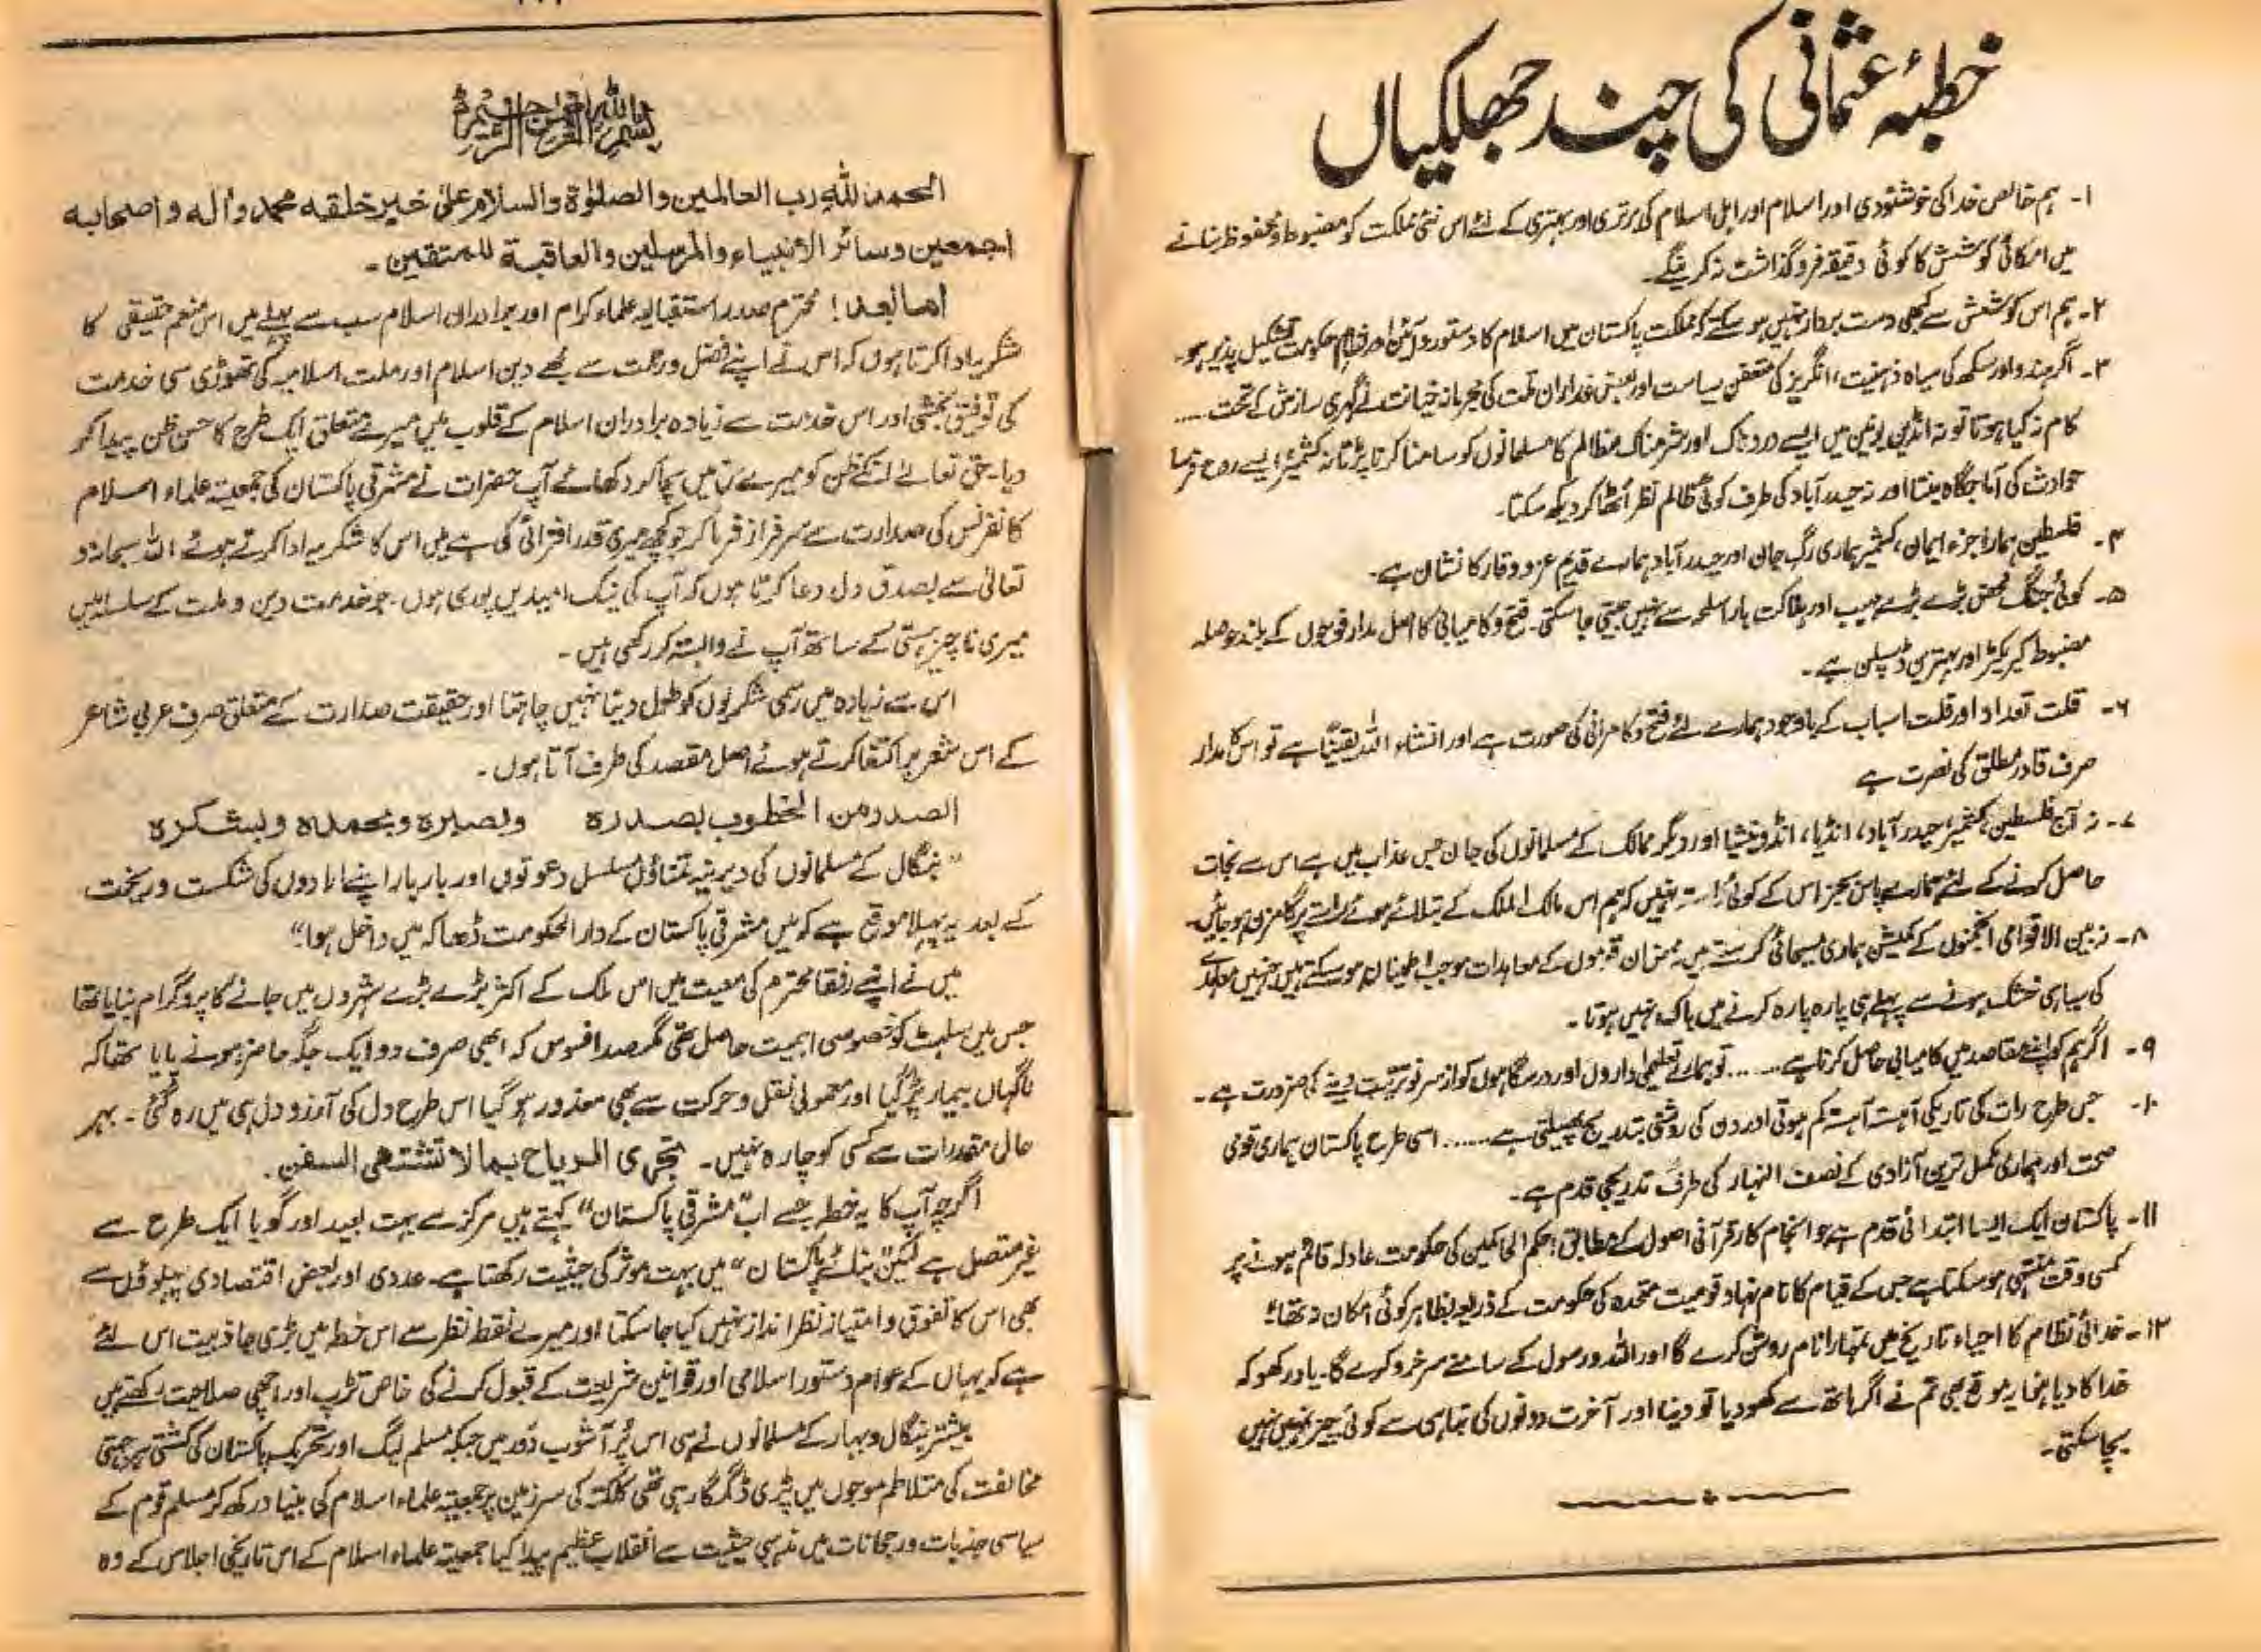 خطبۂ عثمانی کی چند جھلکیاں
۱- ہم خالص خدا کی خوشنودی اور اسلام اور اہل اسلام کی برتری اور بہتری کے لئے اس نئی مملکت کو مضبوط و محفوظ بنانے
میں امکانی کوشش کا کوئی دقیقہ فروگذاشت نہ کریں گے۔
۲- ہم اس کوشش سے کبھی دست بردار نہیں ہو سکتے کہ مملکت پاکستان میں اسلام کا دستور و آئین اور نظام حکومت تشکیل پذیر ہو۔
۳- اگر ہندو اور سکھ کی سیاہ ذہنیت، انگریز کی متعفن سیاست اور بعض غداران ملت کی مجرمانہ خیانت نے گہری سازش کے تحت ....
کام نہ کیا ہوتا تو نہ انڈین یونین میں ایسے دردناک اور شرمناک مظالم کا مسلمانوں کو سامنا کرنا پڑتا نہ کشمیر ایسے روح فرسا
حوادث کی آماجگاہ بنتا اور نہ حیدرآباد کی طرف کوئی ظالم نظر اٹھا کر دیکھ سکتا۔
۴- فلسطین ہمارا جزء ایمان، کشمیر ہماری رگ جان اور حیدرآباد ہمارے قدیم عز و وقار کا نشان ہے۔
۵- کوئی جنگ محض بڑے بڑے مہیب اور ہلاکت بار اسلحہ سے نہیں جیتی جا سکتی۔ فتح و کامیابی کا اصل مدار فوجوں کے بلند حوصلہ
مضبوط کیریکٹر اور بہترین ڈسپلن ہے۔
۶- قلت تعداد اور قلت اسباب کے باوجود ہمارے لئے فتح و کامرانی کی صورت ہے اور انشاء اللہ یقیناً ہے تو اس کا مدار
صرف قادر مطلق کی نصرت ہے
۷- نہ آج فلسطین، کشمیر، حیدرآباد، انڈیا، انڈونیشیا اور دیگر ممالک کے مسلمانوں کی جان جس عذاب میں ہے اس سے نجات
حاصل کرنے کے لئے ہمارے پاس بجز اس کے کوئی راستہ نہیں کہ ہم اس مالک الملک کے بتلائے ہوئے راستے پر گامزن ہو جائیں۔
۸- نہ بین الاقوامی انجمنوں کے کمیشن ہماری مسیحائی کر سکتے ہیں نہ ان قوموں کے معاہدات موجب اطمینان ہو سکتے ہیں جنہیں معاہدے
کی سیاہی خشک ہونے سے پہلے ہی پارہ پارہ کرنے میں باک نہیں ہوتا۔
۹- اگر ہم کو اپنے مقاصد میں کامیابی حاصل کرنا ہے ...... تو ہمارے تعلیمی اداروں اور درسگاہوں کو از سر نو تربیت دینے کی ضرورت ہے۔
۱۰- جس طرح رات کی تاریکی آہستہ آہستہ کم ہوتی اور دن کی روشنی بتدریج پھیلتی ہے ...... اسی طرح پاکستان ہماری قومی
صحت اور ہماری مکمل ترین آزادی کے نصف النہار کی طرف تدریجی قدم ہے۔
۱۱- پاکستان ایک ایسا ابتدائی قدم ہے جو انجام کار قرآنی اصول کے مطابق احکم الحاکمین کی حکومت عادلہ قائم ہونے پر
کسی وقت منتہی ہو سکتا ہے جس کے قیام کا نام نہاد قومیت متحدہ کی حکومت کے ذریعہ بظاہر کوئی امکان نہ تھا؛
۱۲- خدائی نظام کا احیاء تاریخ میں تمہارا نام روشن کرے گا اور اللہ و رسول کے سامنے سرخرو کرے گا۔ یاد رکھو کہ
خدا کا دیا ہوا یہ موقع بھی تم نے اگر ہاتھ سے کھو دیا تو دنیا اور آخرت دونوں کی تباہی سے کوئی چیز تمہیں نہیں
بچا سکتی۔
بسم اللہ الرحمن الرحیم
الحمد للہ رب العالمین والصلوٰۃ والسلام علیٰ خیر خلقہ محمد و اٰلہ و اصحابہ
اجمعین وسائر الانبیاء والمرسلین والعاقبة للمتقین۔
اما بعد! محترم صدر استقبالیہ علماء کرام اور برادران اسلام سب سے پہلے میں اس منعم حقیقی کا
شکریہ ادا کرتا ہوں کہ اس نے اپنے فضل و رحمت سے مجھے دین اسلام اور ملت اسلامیہ کی تھوڑی سی خدمت
کی توفیق بخشی اور اس خدمت سے زیادہ برادران اسلام کے قلوب میں میرے متعلق ایک طرح کا حسن ظن پیدا کر
دیا۔ حق تعالےٰ انکے ظن کو میرے حق میں سچا کر دکھائے آپ حضرات نے مشرقی پاکستان کی جمعیۃ علماء اسلام
کانفرنس کی صدارت سے سرفراز فرما کر جو کچھ میری قدر افزائی کی ہے میں اس کا شکریہ ادا کرتے ہوئے اللہ سبحانہ و
تعالیٰ سے بصدق دل دعا کرتا ہوں کہ آپ کی نیک امیدیں پوری ہوں۔ جو خدمت دین و ملت کے سلسلہ میں
میری ناچیز ہستی کے ساتھ آپ نے وابستہ کر رکھی ہیں۔
اس سے زیادہ میں رسمی شکریوں کو طول دینا نہیں چاہتا اور حقیقت صدارت کے متعلق صرف عربی شاعر
کے اس شعر پر اکتفا کرتے ہوئے اصل مقصد کی طرف آتا ہوں۔
الصدر من الخطوب بصدرہ وبصبرہ وبحمدہ وبشکرہ
”بنگال کے مسلمانوں کی دیرینہ تمناؤں مسلسل دعوتوں اور بار بار اپنے ارادوں کی شکست و ریخت
کے بعد یہ پہلا موقع ہے کہ میں مشرقی پاکستان کے دار الحکومت ڈھاکہ میں داخل ہوا“
میں نے اپنے رفقا محترم کی معیت میں اس ملک کے اکثر بڑے بڑے شہروں میں جانے کا پروگرام بنایا تھا
جس میں سلہٹ کو خصوصی اہمیت حاصل تھی مگر صد افسوس کہ ابھی صرف دو ایک جگہ حاضر ہونے پایا تھا کہ
ناگہاں بیمار پڑ گیا اور معمولی نقل و حرکت سے بھی معذور ہو گیا اس طرح دل کی آرزو دل ہی میں رہ گئی۔ بہر
حال مقدرات سے کسی کو چارہ نہیں۔ تجری الریاح بما لا تشتھی السفن۔
اگرچہ آپ کا یہ خطہ جسے اب ”مشرقی پاکستان“ کہتے ہیں مرکز سے بہت بعید اور گویا ایک طرح سے
غیر متصل ہے لیکن ”بنائے پاکستان“ میں بہت موثر کی حیثیت رکھتا ہے۔ عددی اور بعض اقتصادی پہلوؤں سے
بھی اس کا تفوق و امتیاز نظر انداز نہیں کیا جا سکتا اور میرے نقطہ نظر سے اس خطہ میں بڑی جاذبیت اس لئے
ہے کہ یہاں کے عوام دستور اسلامی اور قوانین شریعت کے قبول کرنے کی خاص تڑپ اور اچھی صلاحیت رکھتے ہیں
بیشتر بنگال و بہار کے مسلمانوں نے ہی اس پر آشوب دور میں جبکہ مسلم لیگ اور تحریک پاکستان کی کشتی ہمہ جہتی
مخالفت کی متلاطم موجوں میں پڑی ڈگمگا رہی تھی کلکتہ کی سرزمین پر جمعیۃ علماء اسلام کی بنیاد رکھ کر مسلم قوم کے
سیاسی جذبات و رجحانات میں مذہبی حیثیت سے انقلاب عظیم پیدا کیا جمعیۃ علماء اسلام کے اس تاریخی اجلاس کے وہ